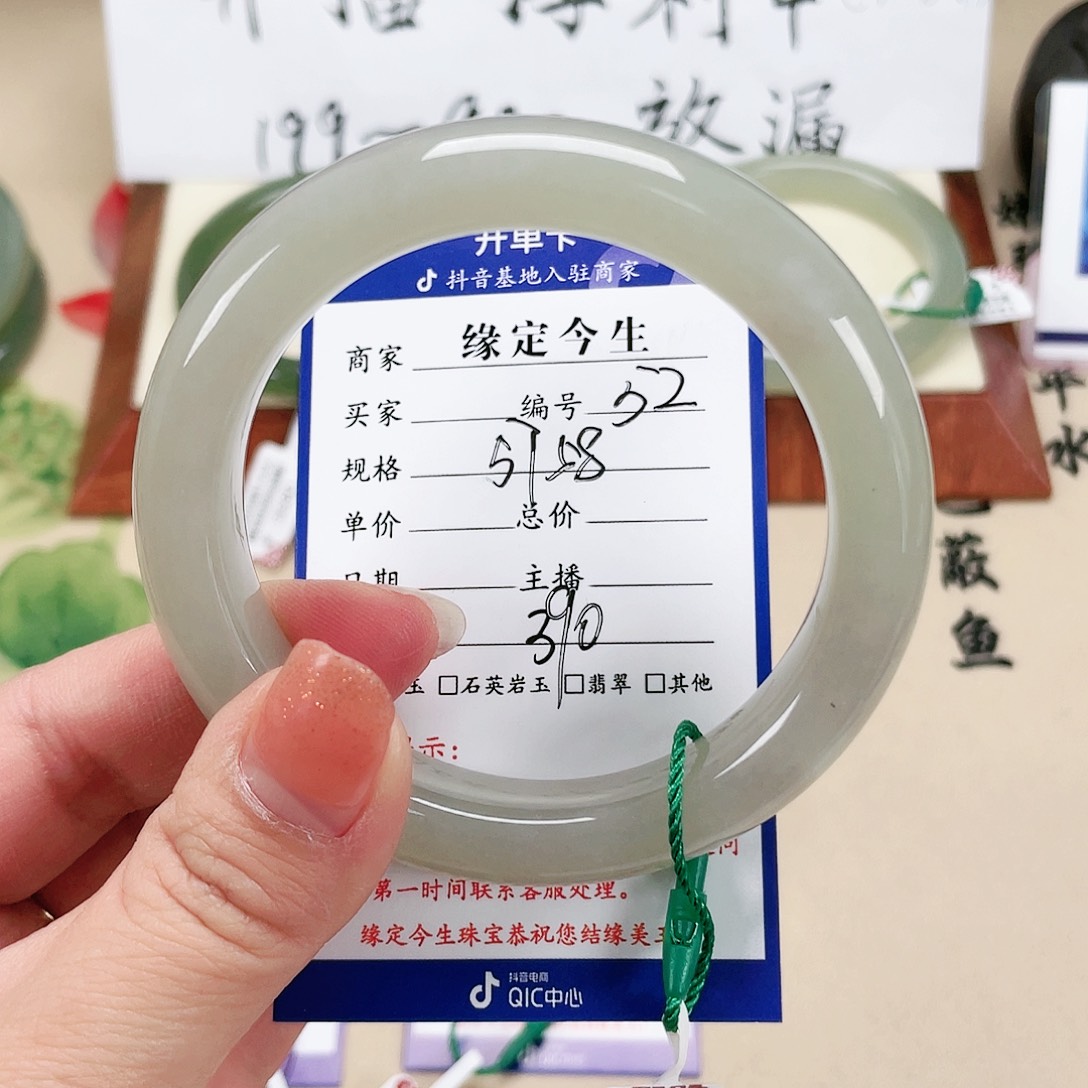 199 放漏
开单卡
抖音基地入驻商家
商家 缘定今生
买家 编号 52
规格 57 58
单价 总价
日期 主播
390
玉 □石英岩玉 □翡翠 □其他
示:
第一时间联系客服处理。
缘定今生珠宝恭祝您结缘美玉
抖音电商
QIC中心
平
水
蔽
鱼